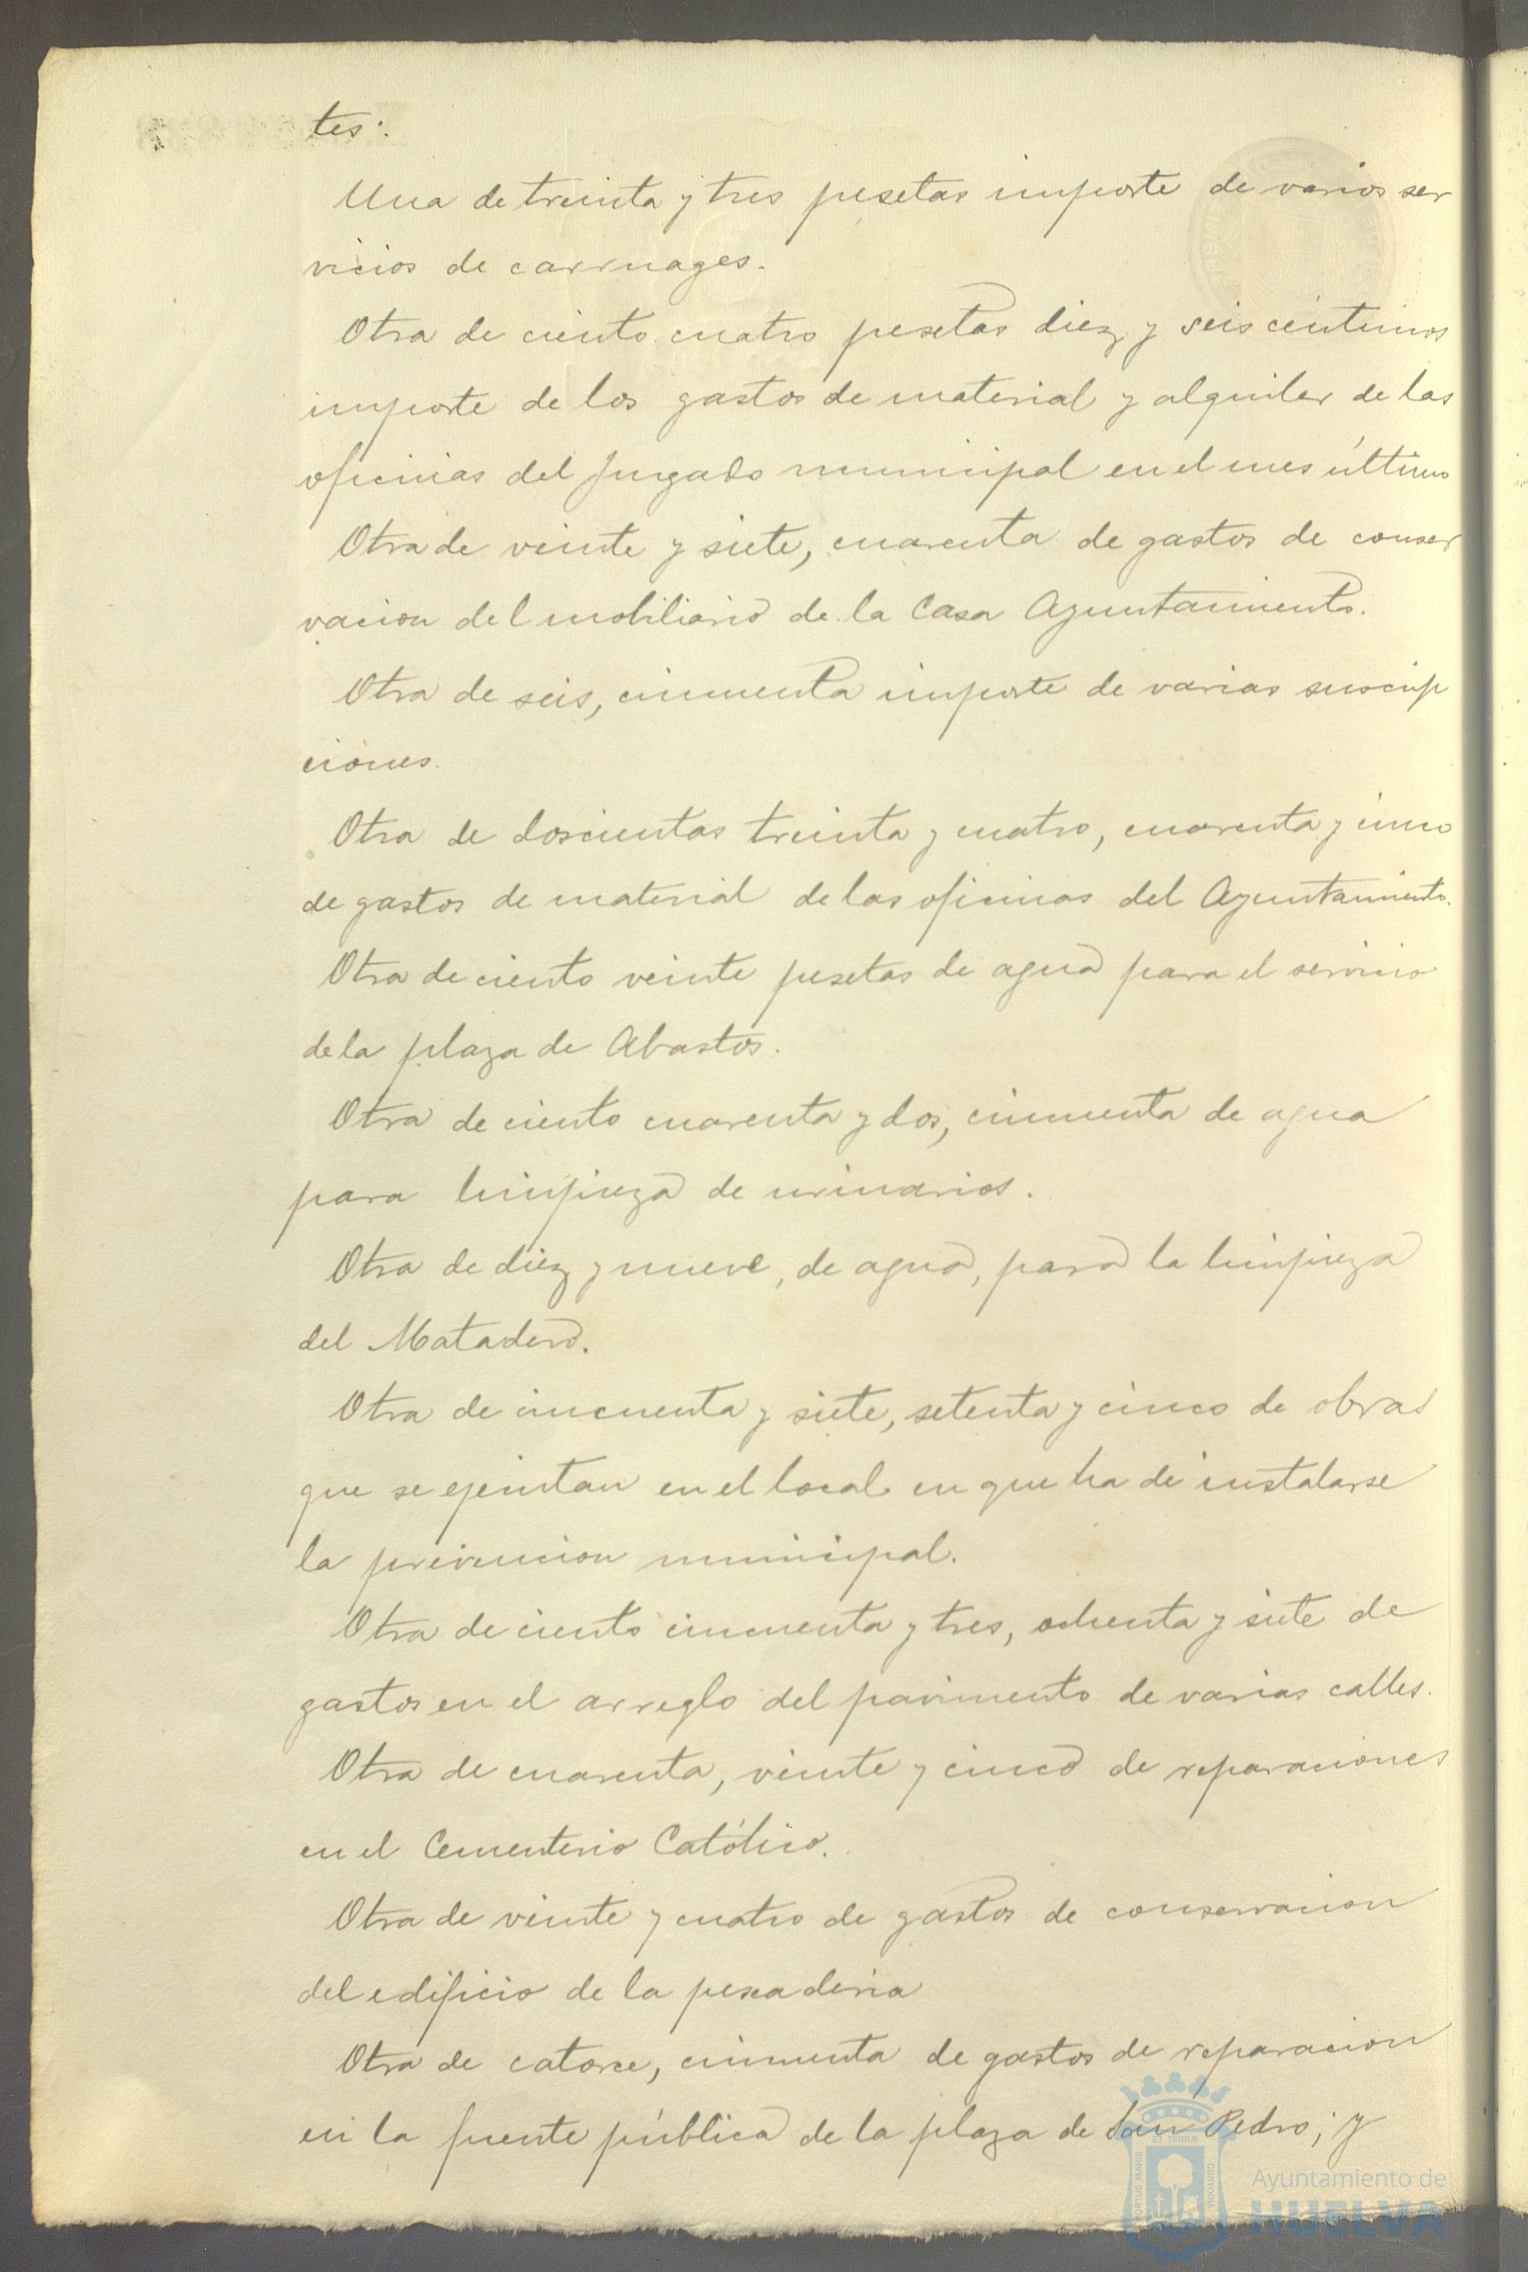 tes:
Una de treinta y tres pesetas importe de varios ser
vicios de carruages.
Otra de ciento cuatro pesetas diez y seis céntimos
importe de los gastos de material y alquiler de las
oficinas del Juzgado municipal en el mes último
Otra de veinte y siete, cuarenta de gastos de conser
vacion del mobiliario de la Casa Ayuntamiento.
Otra de seis, cincuenta importe de varias suscrip
ciones.
Otra de doscientas treinta y cuatro, cuarenta y cinco
de gastos de material de las oficinas del Ayuntamiento.
Otra de ciento veinte pesetas de agua para el servicio
de la plaza de Abastos.
Otra de ciento cuarenta y dos, cincuenta de agua
para limpieza de urinarios.
Otra de diez y nueve, de agua, para la limpieza
del Matadero.
Otra de cincuenta y siete, setenta y cinco de obras
que se ejecutan en el local en que ha de instalarse
la prevencion municipal.
Otra de ciento cincuenta y tres, ochenta y siete de
gastos en el arreglo del pavimento de varias calles.
Otra de cuarenta, veinte y cinco de reparaciones
en el Cementerio Católico.
Otra de veinte y cuatro de gastos de conservacion
del edificio de la pescadería
Otra de catorce, cincuenta de gastos de reparacion
en la fuente pública de la plaza de San Pedro; y
Ayuntamiento de
HUELVA